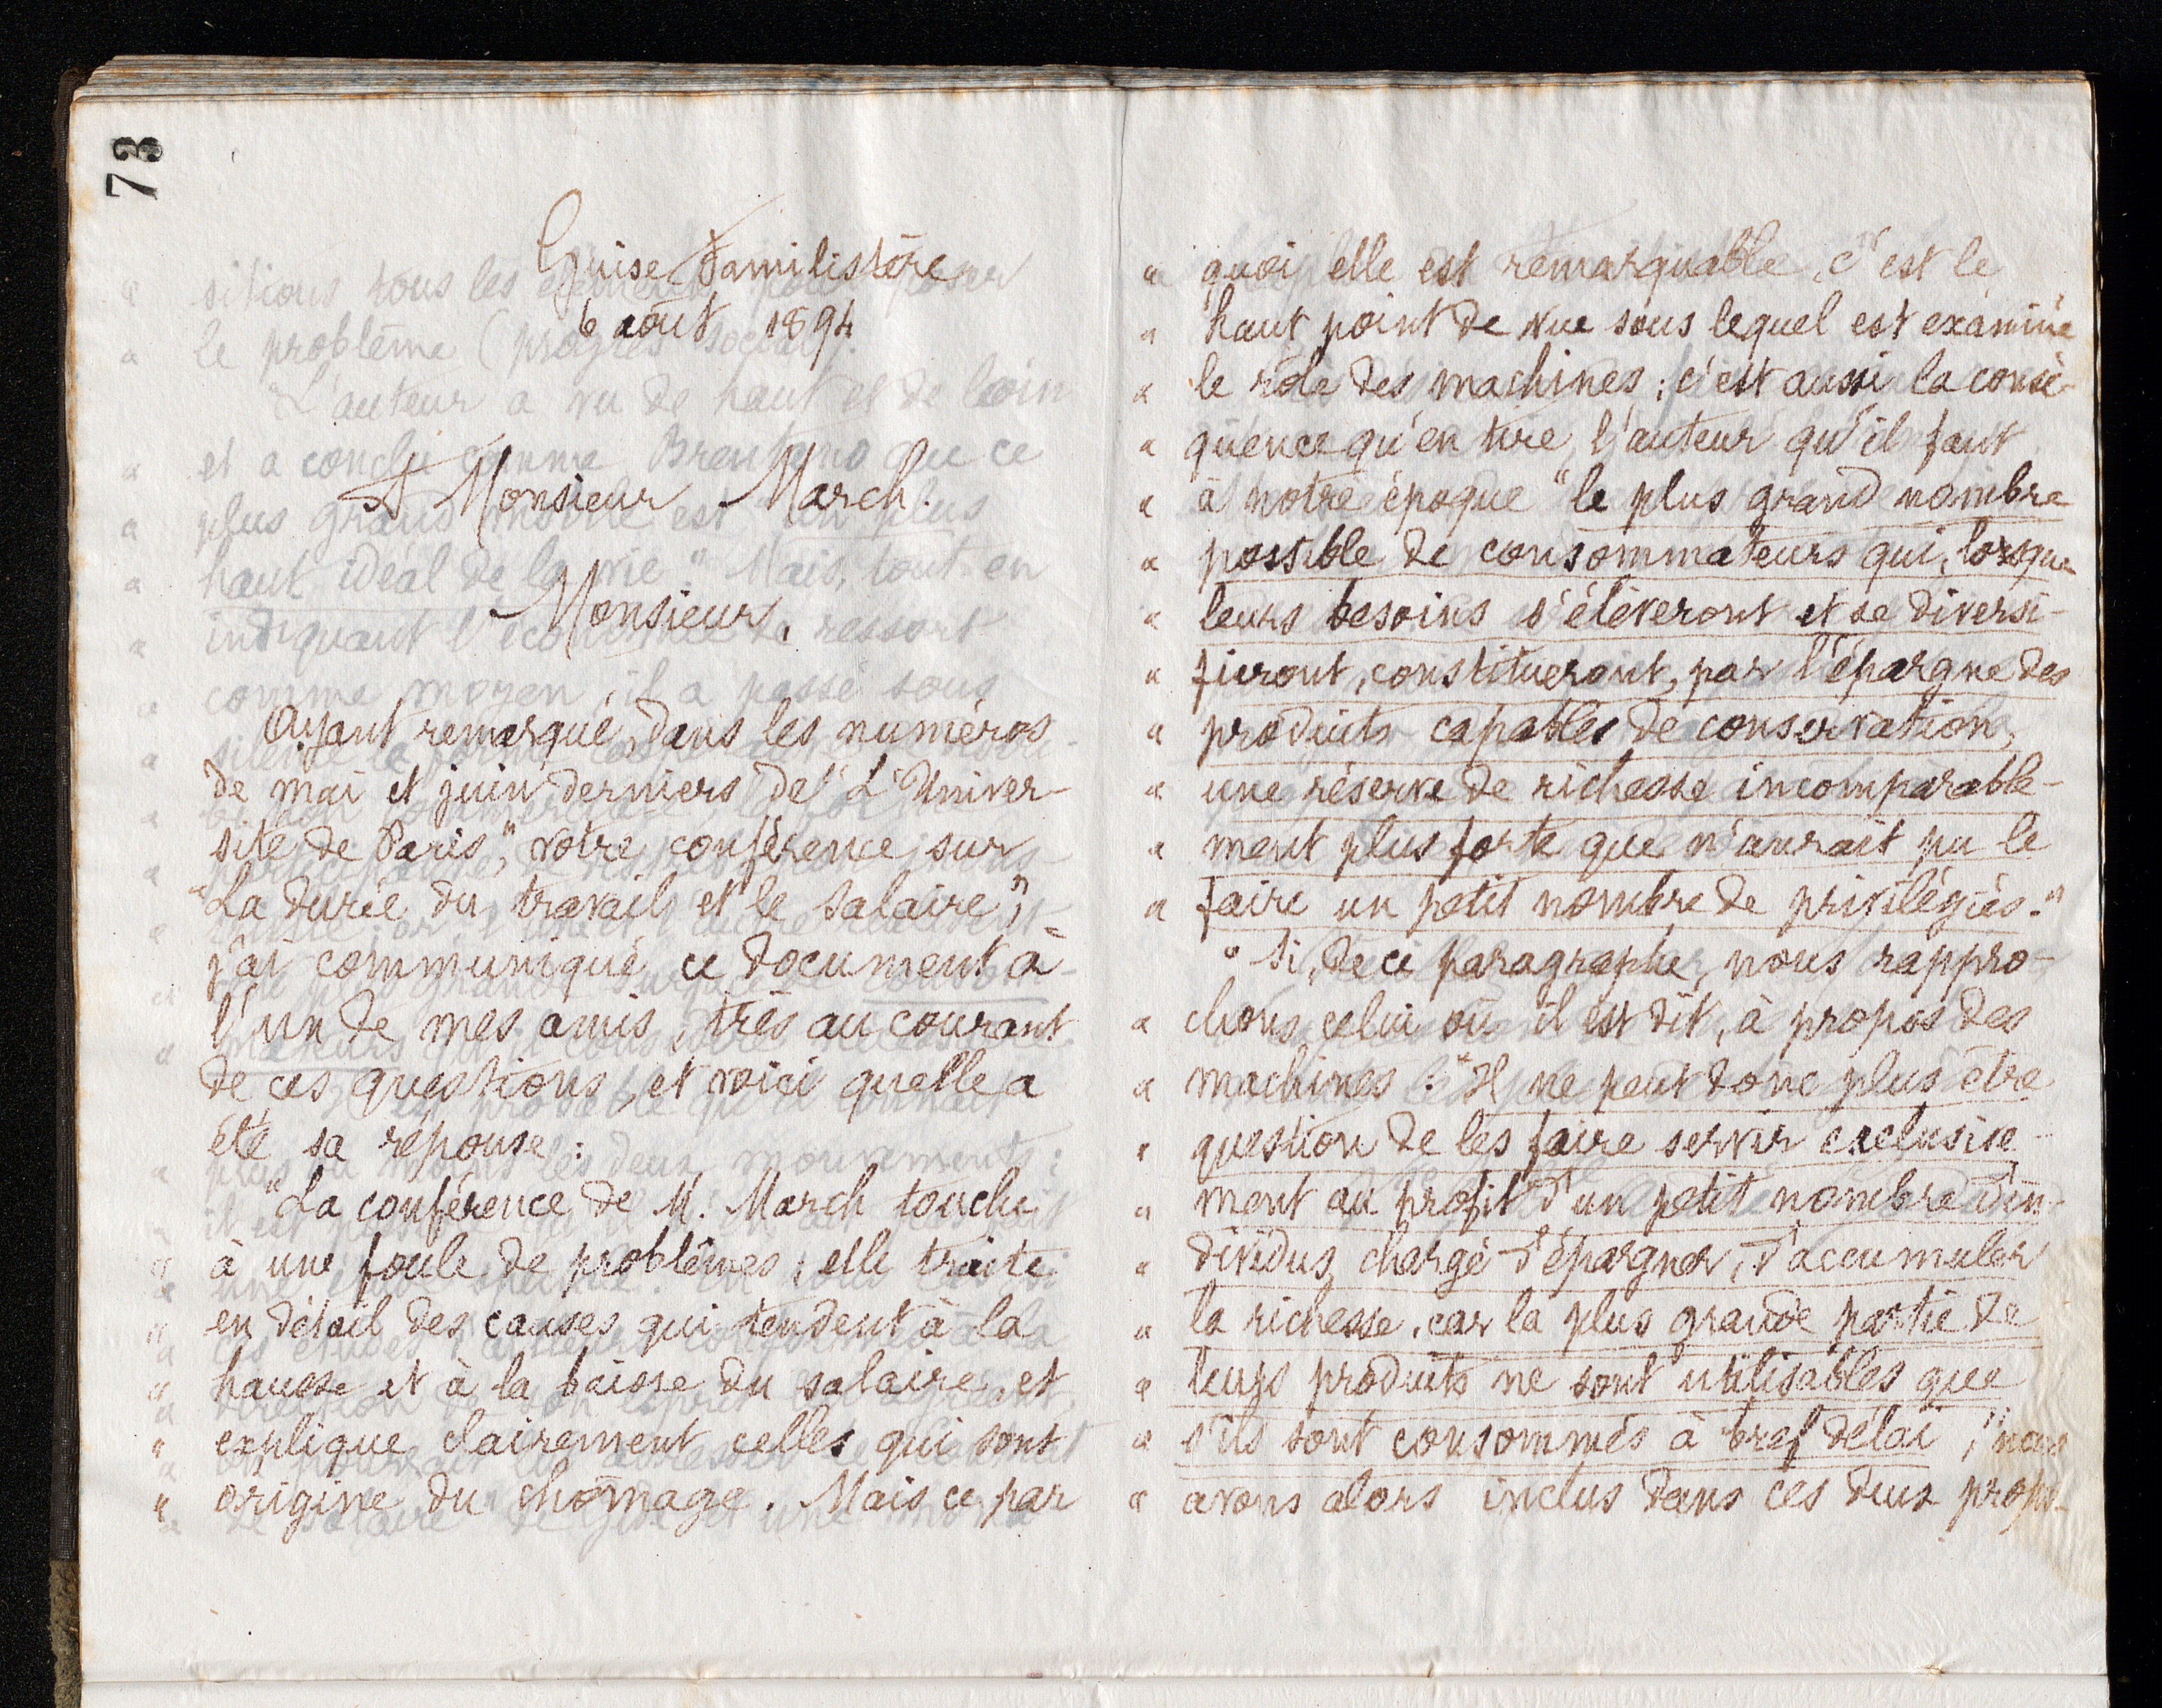 73
Guise Familistère
6 août 1894
A Monsieur March.
Monsieur,
Ayant remarqué, dans les numéros
de mai et juin derniers de "L'Univer-
sité de Paris," votre conférence sur
"La durée du travail et le salaire",
j'ai communiqué ce document à
l'un de mes amis, très au courant
de ces questions, et voici quelle a
été sa réponse:
"La conférence de M. March touche
" à une foule de problèmes; elle traite
" en détail des causes qui tendent à la
" hausse et à la baisse du salaire, et
" explique clairement celles qui sont
" origine du chômage. Mais ce par
" quoi elle est remarquable, c'est le
" haut point de vue sous lequel est examiné
" le rôle des machines; c'est aussi la consé-
" quence qu'en tire l'auteur qu'il faut
" à notre époque "le plus grand nombre
" possible de consommateurs qui, lorsque
" leurs besoins s'élèveront et se diversi-
" fieront, constitueront, par l'épargne des
" produits capables de conservation,
" une réserve de richesse incomparable-
" ment plus forte que n'aurait pu le
" faire un petit nombre de privilégiés."
" Si, de ce paragraphe, nous rappro-
" chons celui où il est dit, à propos des
" machines: "Il ne peut donc plus être
" question de les faire servir exclusive-
" ment au profit d'un petit nombre d'in-
" dividus, chargé d'épargner, d'accumuler
" la richesse, car la plus grande partie de
" leurs produits ne sont utilisables que
" s'ils sont consommés à bref délai," nous
" avons alors inclus dans ces deux propo-